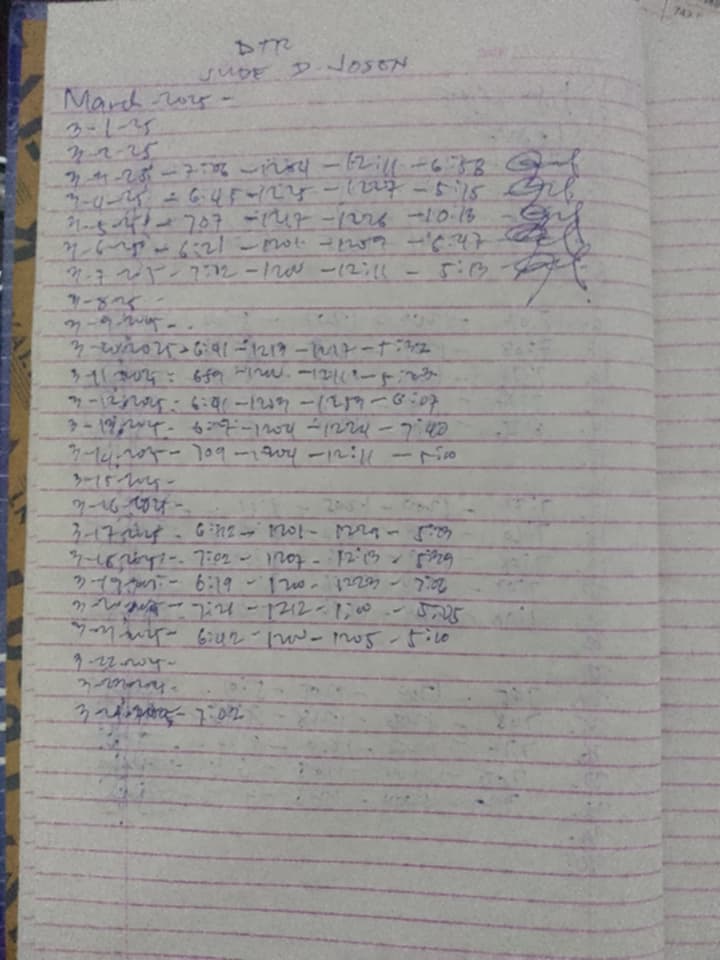 DTR
JUDE D. JOSON
March 2025 -
3-1-25
3-2-25
3-3-25 - 7:06 - 1204 - 12:11 - 6:58
3-4-25 - 6:45 - 1225 - 1227 - 5:15
3-5-25 - 707 - 1217 - 1226 - 10:13
3-6-25 - 6:21 - 1201 - 1259 - 6:47
3-7-2025 - 7:12 - 1200 - 12:11 - 5:13
3-8-25 -
3-9-2025 -
3-10-2025 - 6:41 - 1213 - 1217 - 5:32
3-11-2025 - 659 - 1200 - - 5:23
3-12-2025 - 6:41 - 1203 - 1253 - 6:07
3-13-2025 - - 1204 - 1224 - 7:40
3-14-2025 - 709 - 1204 - 12:11 - 5:10
3-15-2025 -
3-16-2025 -
3-17-2025 - 6:42 - 1201 - 1229 - 5:03
3-18-2025 - 7:02 - 1207 - 12:13 - 5:39
3-19-2025 - 6:19 - 1200 - 1223 - 7:02
3-20-2025 - 7:21 - 1212 - 1:00 - 5:05
3-21-2025 - 6:42 - 1200 - 1205 - 5:10
3-22-2025 -
3-23-2025 -
3-24-2025 - 7:02